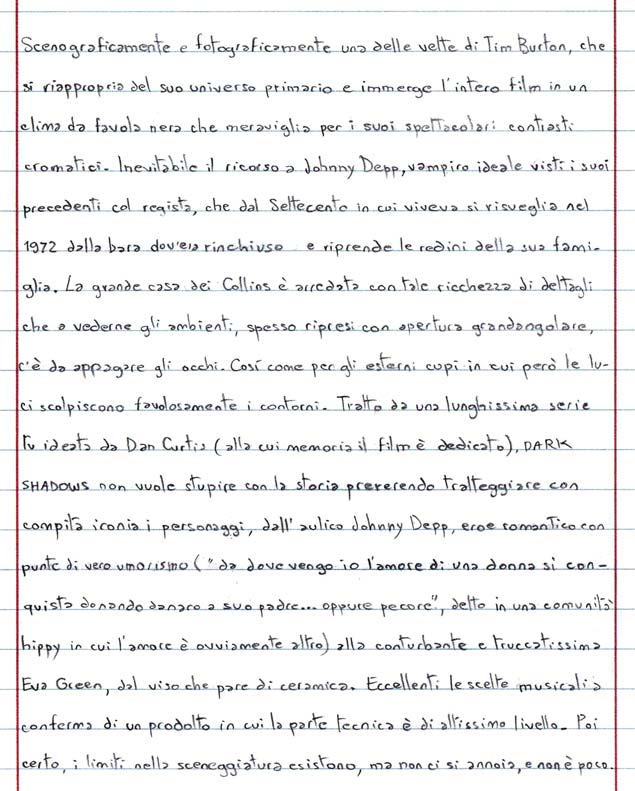 Scenograficamente e fotograficamente una delle vette di Tim Burton, che
si riappropria del suo universo primario e immerge l'intero film in un
clima da favola nera che meraviglia per i suoi spettacolari contrasti
cromatici. Inevitabile il ricorso a Johnny Depp, vampiro ideale visti i suoi
precedenti col regista, che dal Settecento in cui viveva si risveglia nel
1972 dalla bara dov'era rinchiuso e riprende le redini della sua fami-
glia. La grande casa dei Collins è arredata con tale ricchezza di dettagli
che a vederne gli ambienti, spesso ripresi con apertura grandangolare,
c'è da appagare gli occhi. Così come per gli esterni cupi in cui però le lu-
ci scolpiscono favolosamente i contorni. Tratto da una lunghissima serie
tv ideata da Dan Curtis (alla cui memoria il film è dedicato), DARK
SHADOWS non vuole stupire con la storia prererendo tratteggiare con
compita ironia i personaggi, dall'aulico Johnny Depp, eroe romantico con
punte di vero umorismo ("da dove vengo io l'amore di una donna si con-
quista donando danaro a suo padre... oppure pecore", detto in una comunità
hippy in cui l'amore è ovviamente altro) alla conturbante e truccatissima
Eva Green, dal viso che pare di ceramica. Eccellenti le scelte musicali a
conferma di un prodotto in cui la parte tecnica è di altissimo livello. Poi
certo, i limiti nella sceneggiatura esistono, ma non ci si annoia, e non è poco.